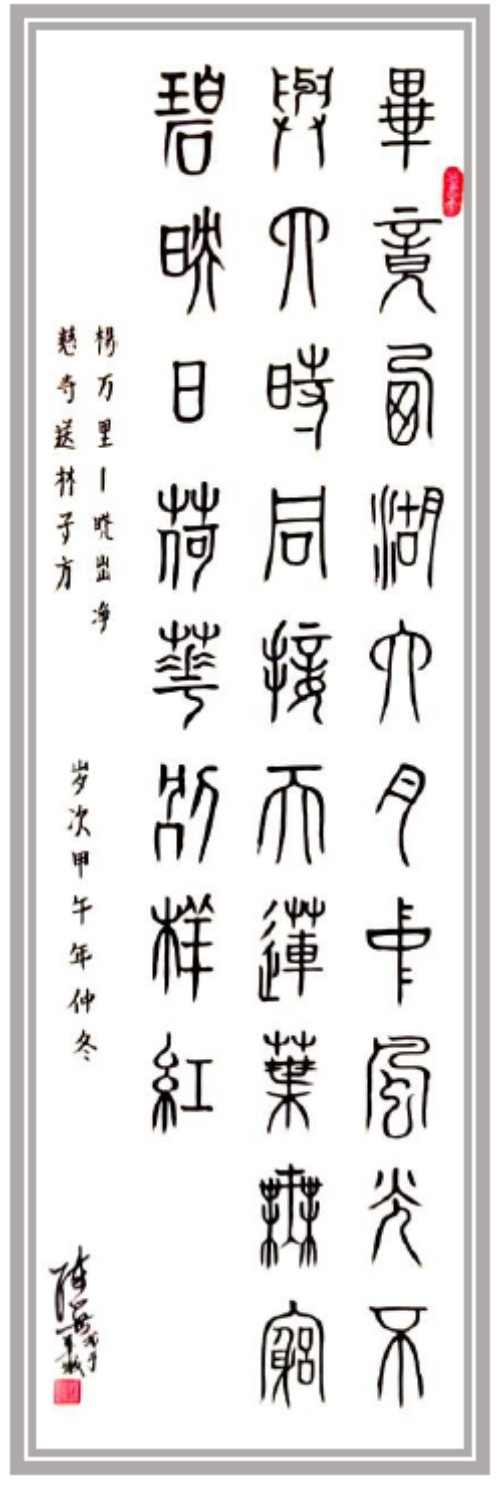 畢竟西湖六月中風光不
與四時同接天蓮葉無窮
碧映日荷華別樣紅
杨万里—晓出净
慈寺送林子方
岁次甲午年仲冬